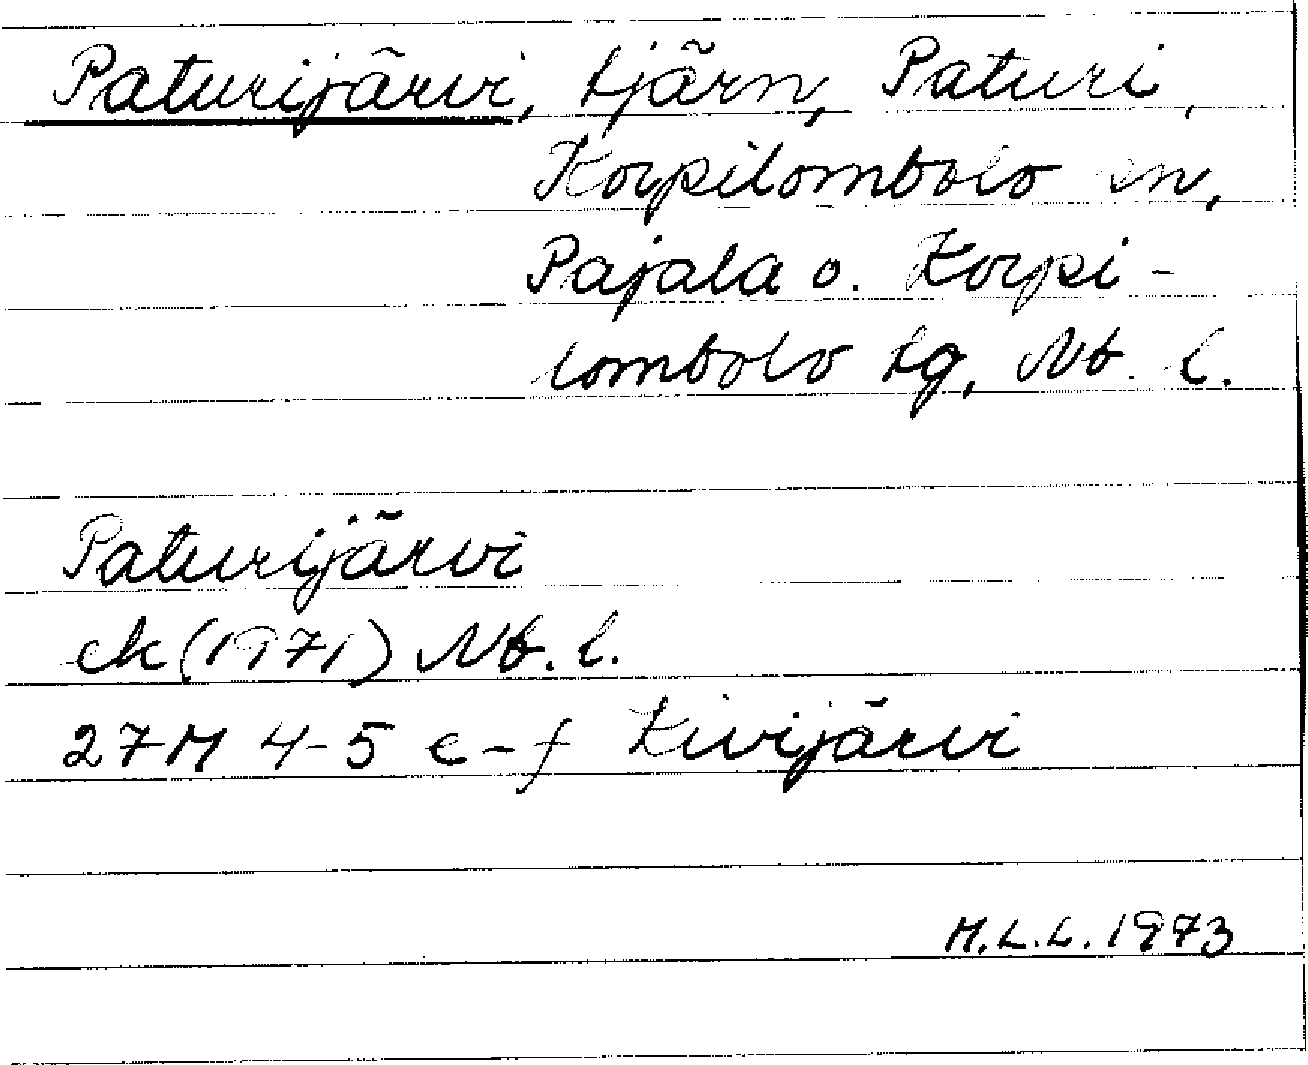 Paturijärvi, tjärn, Paturi,
Korpilombolo sn,
Pajala o. Korpi-
lombolo tg, Nb. l.
Paturijärvi
ek (1971) Nb. l.
27M 4-5 e-f Kivijärvi
M.L.L. 1973